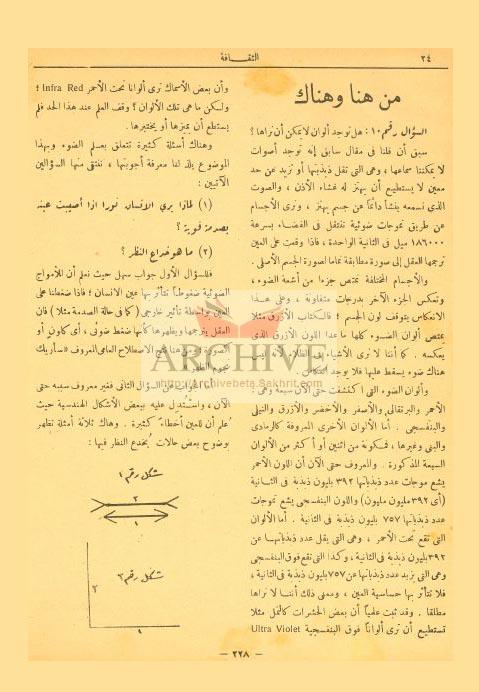 ٢٤
الثقافة
من هنا وهناك
السؤال رقم ١٠ : هل توجد ألوان لا يمكن أن نراها ؟
سبق أن قلنا فى مقال سابق إنه توجد أصوات
لا يمكننا سماعها ، وهى التى تقل ذبذبتها أو تزيد عن حد
معين لا يستطيع أن يهتز له غشاء الأذن ، والصوت
الذى نسمعه ينشأ دائماً عن جسم يهتز ، ونرى الأجسام
عن طريق تموجات ضوئية تنتقل فى الفضاء بسرعة
١٨٦٠٠٠ ميل فى الثانية الواحدة ، فاذا وقعت على العين
ترجمها العقل إلى صورة مطابقة تماما لصورة الجسم الأصلى .
والأجسام المختلفة تمتص جزءا من أشعة الضوء ،
وتعكس الجزء الآخر بدرجات متفاوتة ، وعلى هذا
الانعكاس يتوقف لون الجسم ؛ فالكتاب الأزرق مثلا
يمتص ألوان الضوء كلها ما عدا اللون الأزرق الذى
يعكسه . كما أننا لا نرى الأشياء فى الظلام لأنه ليس
هناك ضوء يسقط عليها فلا يوجد انعكاس .
وألوان الضوء التى اكتشفت حتى الآن سبعة وهى :
الأحمر والبرتقالى والأصفر والأخضر والأزرق والنيلى
والبنفسجى . أما الألوان الأخرى المعروفة كالرمادى
والبنى وغيرها ، فمكونة من اثنين أو أكثر من الألوان
السبعة المذكورة . والمعروف حتى الآن أن اللون الأحمر
يشع موجات عدد ذبذباتها ٣٩٢ بليون ذبذبة فى الثانية
(أى ٣٩٢ مليون مليون) واللون البنفسجى يشع تموجات
عدد ذبذباتها ٧٥٧ بليون ذبذبة فى الثانية . أما الألوان
التى تقع تحت الأحمر ، وهى التى يقل عدد ذبذباتها عن
٣٩٢ بليون ذبذبة فى الثانية ، وكذا التى تقع فوق البنفسجى
وهى التى يزيد عدد ذبذباتها عن ٧٥٧ بليون ذبذبة فى الثانية ،
فلا تتأثر بها حساسية العين ، ومعنى ذلك أننا لا نراها
مطلقا . وقد ثبت علمياً أن بعض الحشرات كالنمل مثلا
تستطيع أن ترى ألواناً فوق البنفسجية Ultra Violet
وأن بعض الأسماك ترى ألوانا تحت الأحمر Infra Red ؛
ولكن ما هى تلك الألوان ؟ وقف العلم عند هذا الحد فلم
يستطع أن يميزها أو يختبرها .
وهناك أسئلة كثيرة تتعلق بعلم الضوء وبهذا
الموضوع يلذ لنا معرفة أجوبتها ، ننتقى منها السؤالين
الآتيين :
(١) لماذا يرى الانسان نورا اذا أصيبت عينه
بصدمة قوية ؟
(٢) ما هو خداع النظر ؟
فللسؤال الأول جواب سهل حيث نعلم أن للأمواج
الضوئية ضغوطاً تتأثر بها عين الانسان ؛ فاذا ضغطنا على
العين بواسطة تأثير خارجى (كما فى حالة الصدمة مثلا) فان
العقل يترجمها ويظهرها كأنها ضغط ضوئى ، أى كألوان أو
كصورة ومن هنا نتج الاصطلاح العامى المعروف «سأريك
نجوم الظهر»
أما الجواب عن السؤال الثانى فغير معروف سببه حتى
الآن ، واستُدِل عليه ببعض الأشكال الهندسية حيث
عُلم أن للعين أخطاءً كثيرة . وهاك ثلاثة أمثلة تظهر
بوضوح بعض حالات يُخدع النظر فيها :
شكل رقم ١
٢
١
شكل رقم ٢
٢
١
ARCHIVE
http://archivebeta.Sakhrit.com
— ٢٢٨ —